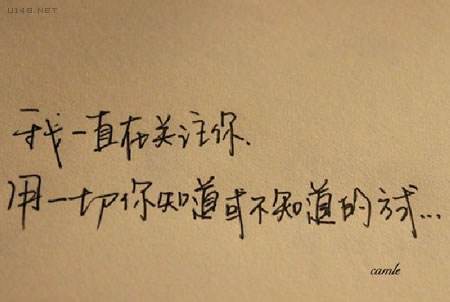 U148.NET
我一直在关注你.
用一切你知道或不知道的方式...
camle